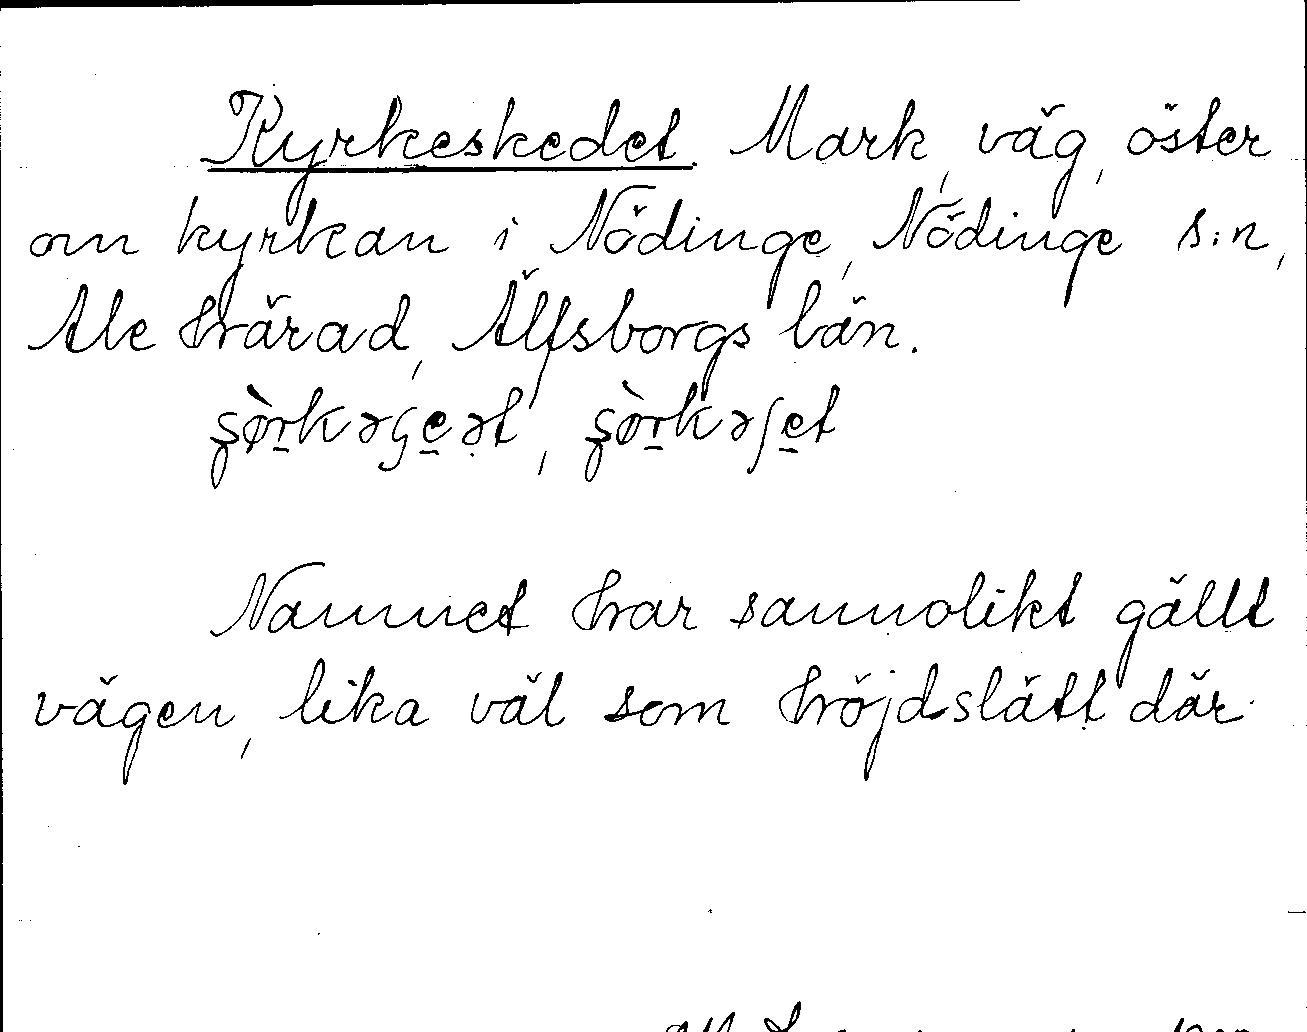 Kyrkeskedet. Mark, väg, öster
om kyrkan i Nödinge, Nödinge s:n,
Ale härad, Älfsborgs län.
Namnet har sannolikt gällt
vägen, lika väl som höjdslätt där.